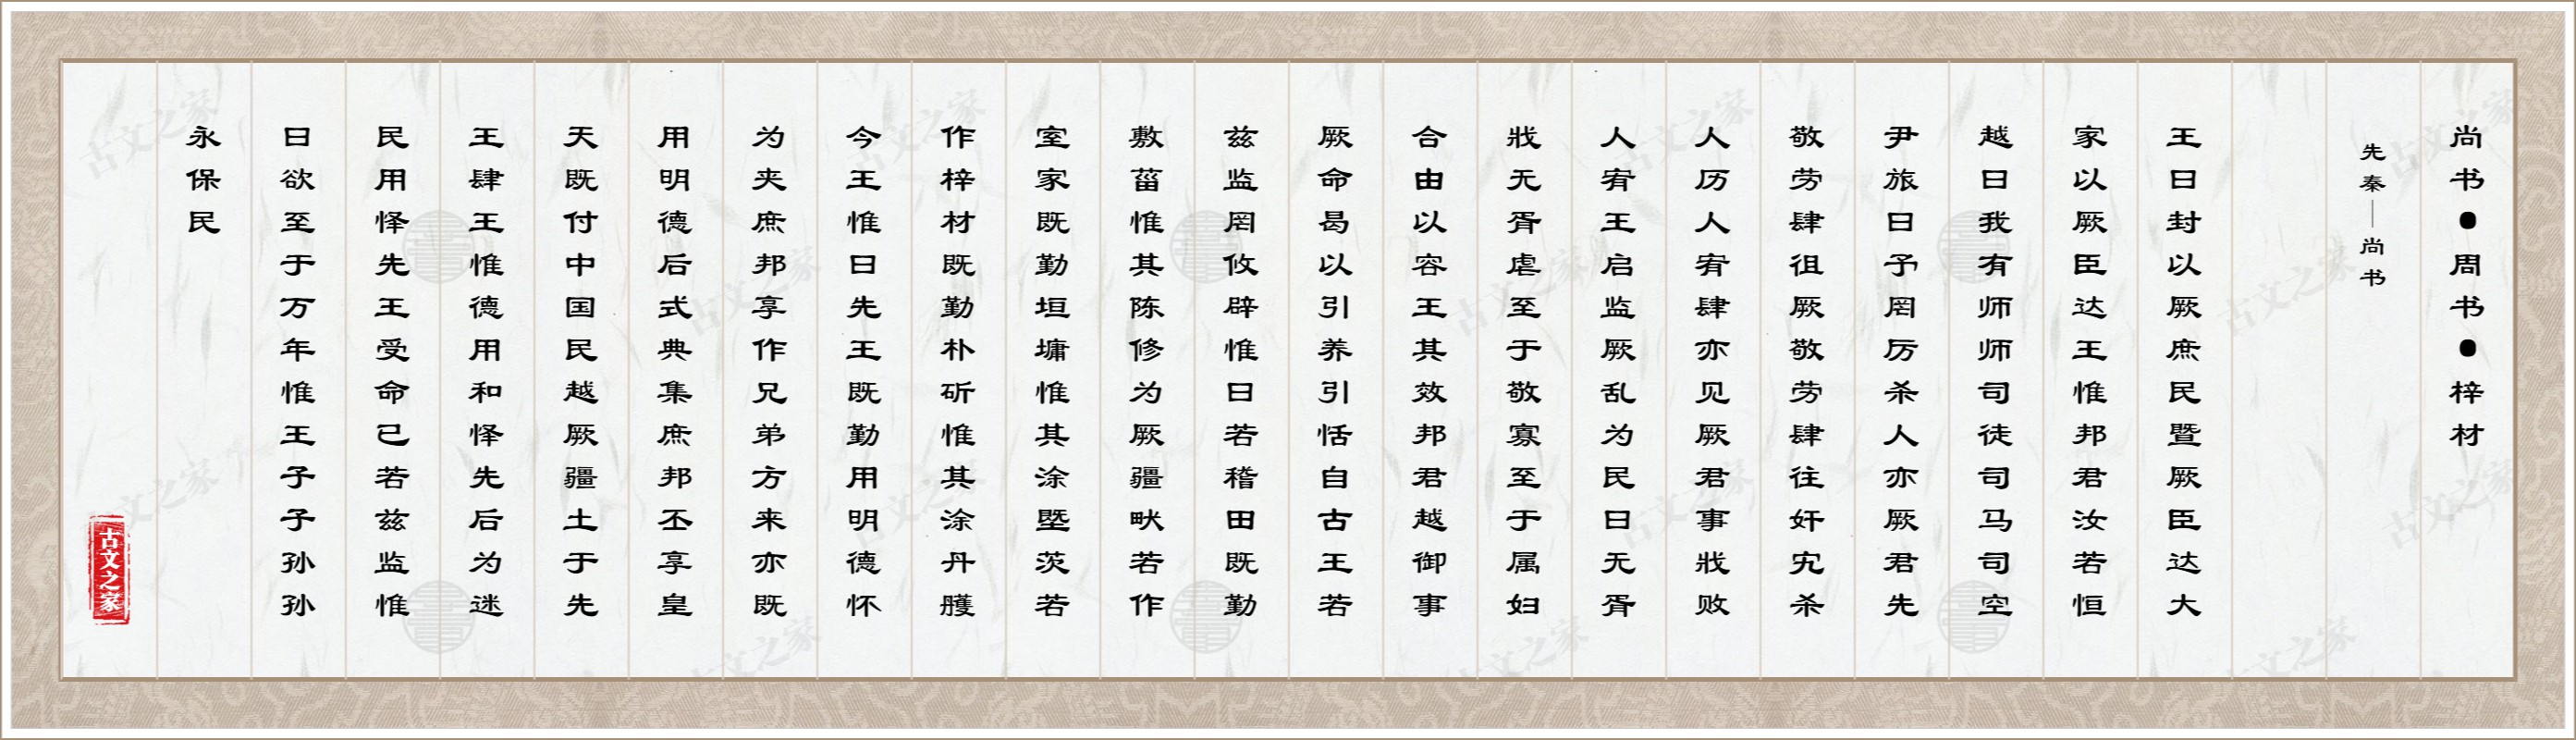 尚书●周书●梓材
先秦—尚书
王曰封以厥庶民暨厥臣达大
家以厥臣达王惟邦君汝若恒
越曰我有师师司徒司马司空
尹旅曰予罔厉杀人亦厥君先
敬劳肆徂厥敬劳肆往奸宄杀
人历人宥肆亦见厥君事戕败
人宥王启监厥乱为民曰无胥
戕无胥虐至于敬寡至于属妇
合由以容王其效邦君越御事
厥命曷以引养引恬自古王若
兹监罔攸辟惟曰若稽田既勤
敷菑惟其陈修为厥疆畎若作
室家既勤垣墉惟其涂塈茨若
作梓材既勤朴斫惟其涂丹雘
今王惟曰先王既勤用明德怀
为夹庶邦享作兄弟方来亦既
用明德后式典集庶邦丕享皇
天既付中国民越厥疆土于先
王肆王惟德用和怿先后为迷
民用怿先王受命已若兹监惟
曰欲至于万年惟王子子孙孙
永保民
古文之家